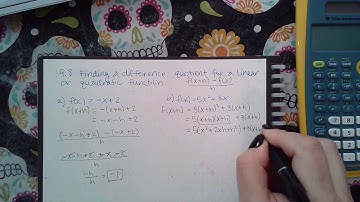 9.8 Finding a difference quotient for a linear
or quadratic function f(x+h) - f(x)
h
a) f(x) = -x+2
f(x+h) = -(x+h)+2
= -x-h+2
(-x-h+2) - (-x+2)
h
-x-h+2 + x-2
h
-h
h = -1
b) f(x) = 5x²+3x
f(x+h) = 5(x+h)² + 3(x+h)
= 5(x+h)(x+h) + 3(x+h)
= 5(x²+2xh+h²)